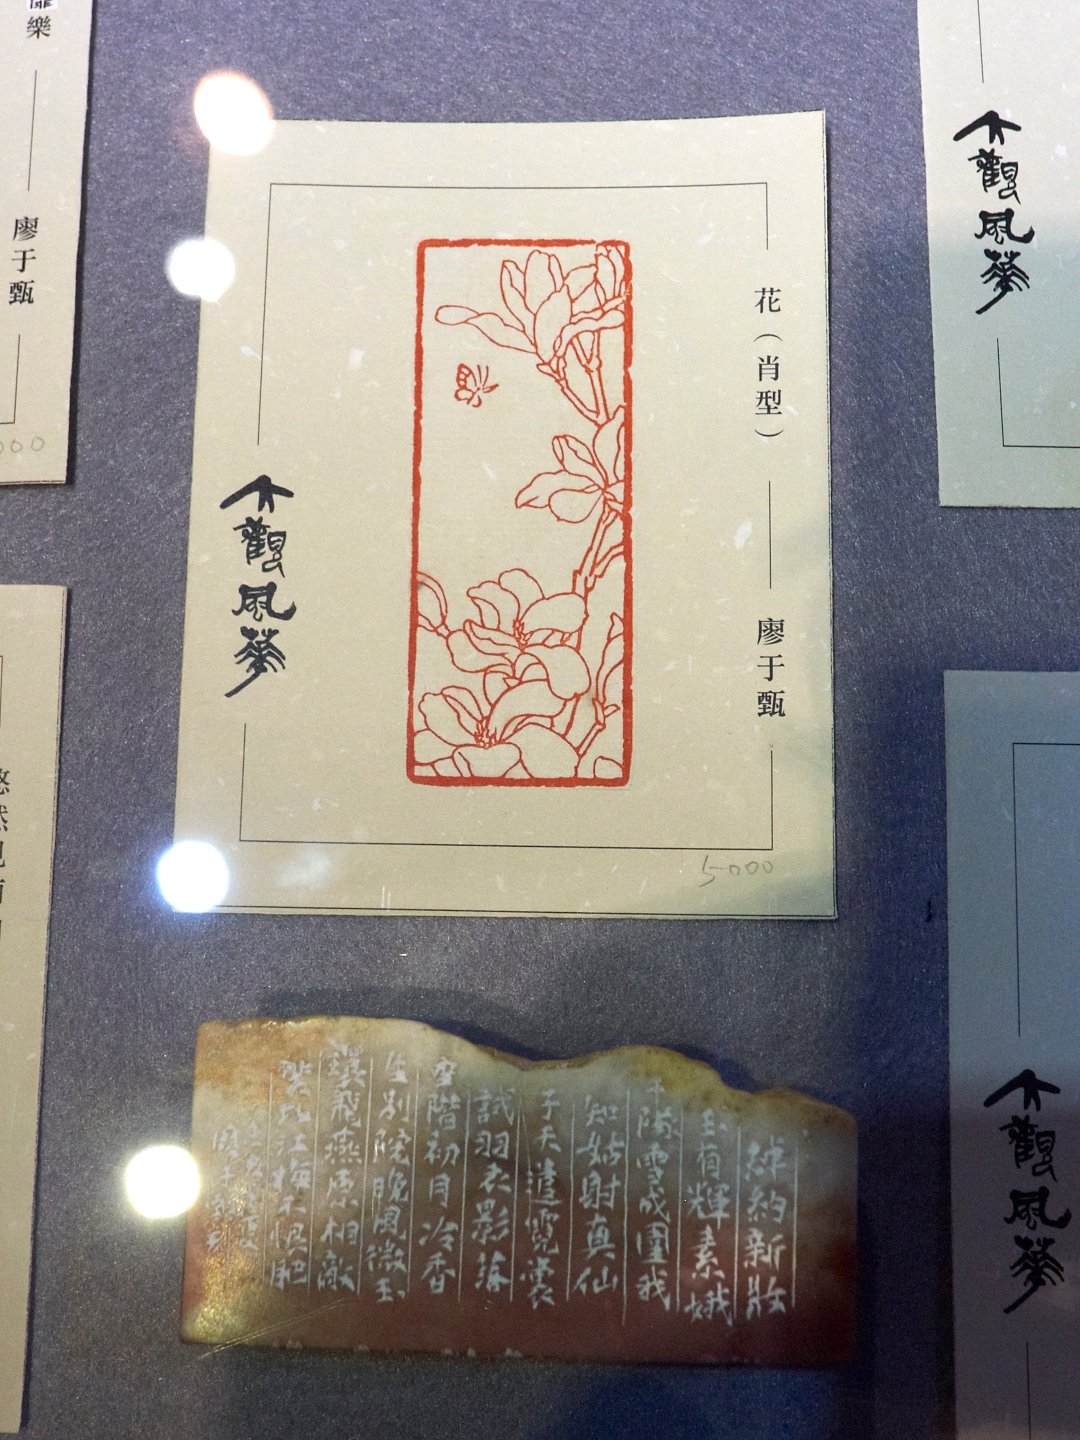 花（肖型）
廖于甄
大觀風華
5000
綽約新妝
玉有輝素娥
千隊雪成圍我
知姑射真仙
子天遣霓裳
試羽衣影落
空階初月冷香
生別院晚風微玉
環飛燕原相敵
笑比江梅不恨肥
廖于甄刻
樂
廖于甄
000
悠然見
大觀風華
大觀風華